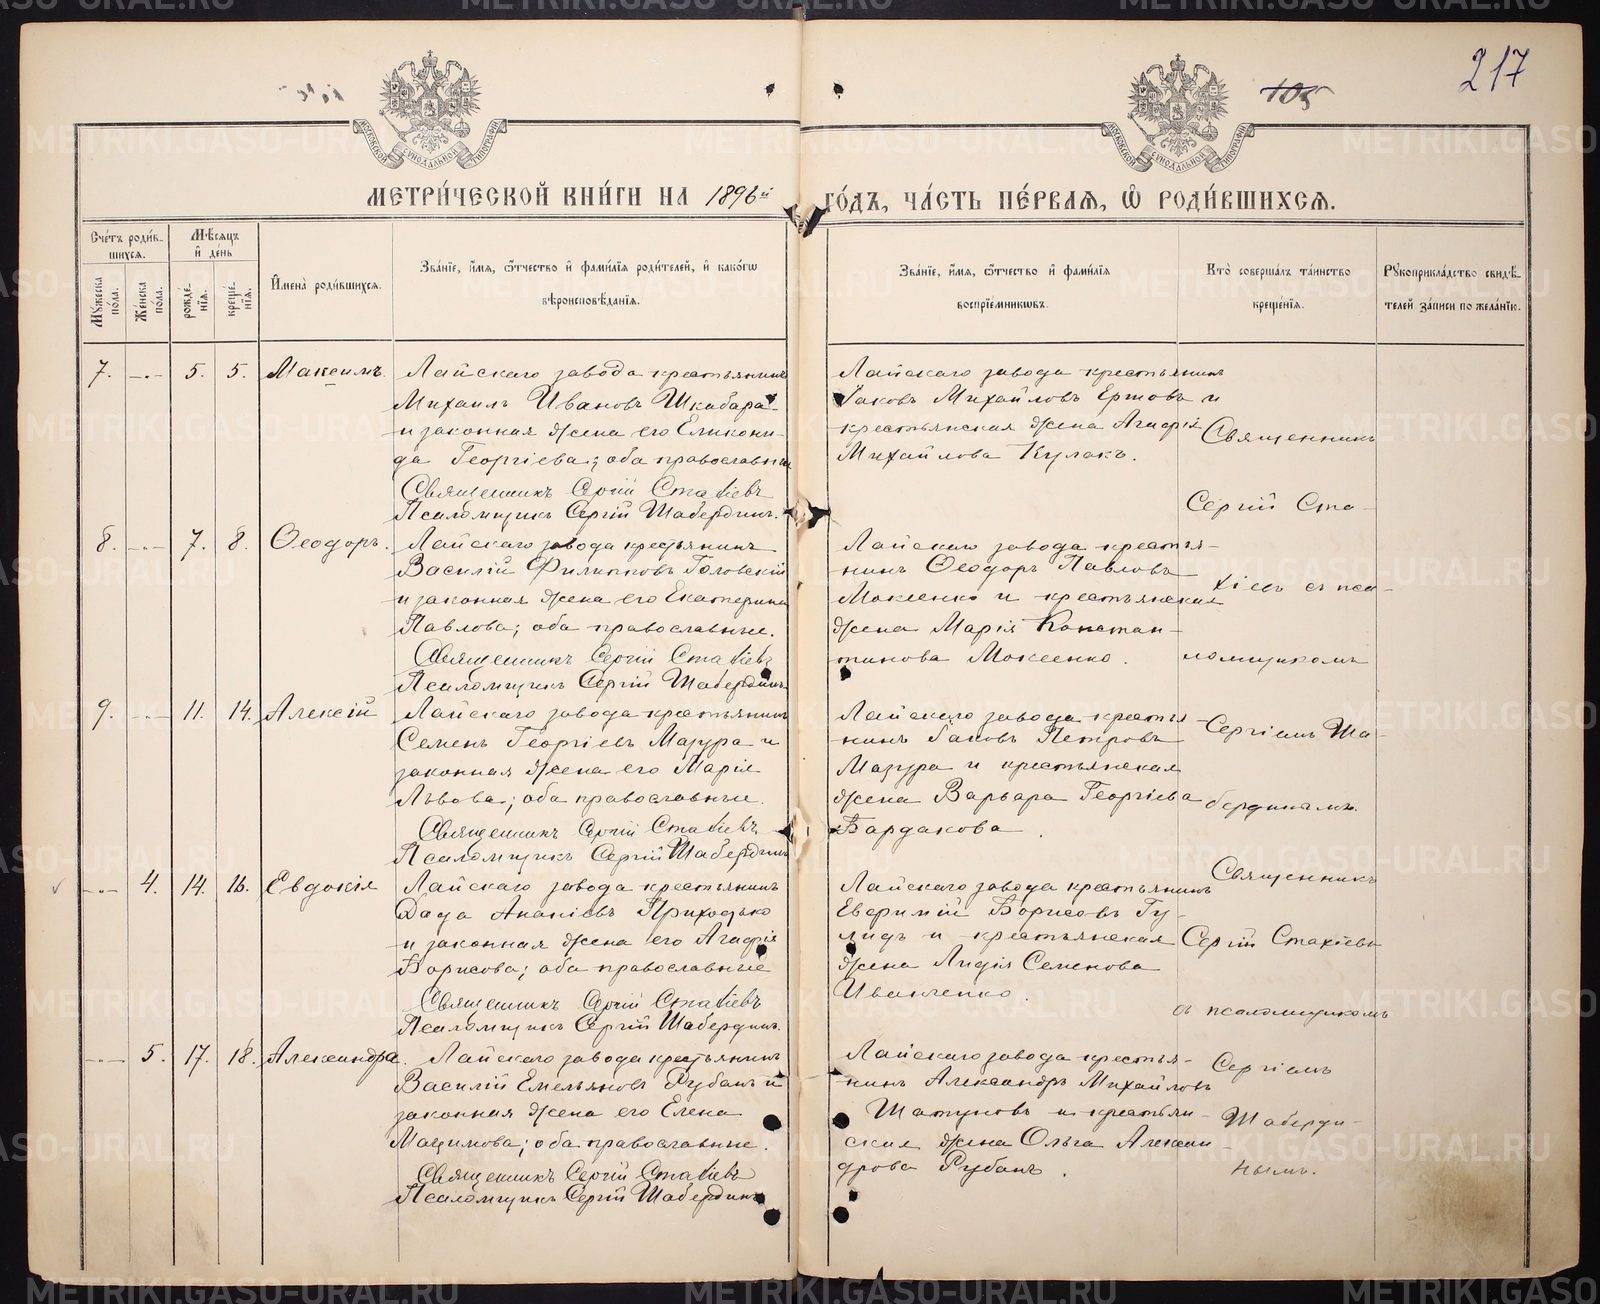 217
105
МОСКОВСКОЙ СѴНОДАЛЬНОЙ ТИПОГРАФІИ
МОСКОВСКОЙ СѴНОДАЛЬНОЙ ТИПОГРАФІИ
МЕТРИ́ЧЕСКОЙ КНИ́ГИ НА 1896й ГО́ДЪ, ЧА́СТЬ ПЕ́РВАЯ, Ѡ҆ РОДИ́ВШИХСЯ.
Сче́тъ роди́в-
шихся.
Мꙋжеска по́ла.
Же́нска по́ла.
Мѣ́сяцъ
и҆ де́нь
рожде́-
нїя.
креще́-
нїя.
И҆мена̀ роди́вшихся.
Зва́нїе, и҆́мя, ѻ҆́тчество и҆ фами́лїя роди́телей, и҆ како́гѡ
вѣроисповѣ́данїя.
Зва́нїе, и҆́мя, ѻ҆́тчество и҆ фами́лїя
воспрїе́мникѡвъ.
Кто̀ соверша́лъ та́инство
креще́нїя.
Рꙋкоприкла́дство свидѣ́-
телей за́писи по жела́нїю.
7. -"- 5. 5. Максимъ.
Лайскаго завода крестьянинъ
Михаилъ Ивановъ Шкабара
и законная жена его Еликони-
да Георгіева; оба православные
Священникъ Сергій Стахіевъ
Псаломщикъ Сергій Шабердинъ.
Лайскаго завода крестьянинъ
Іаковъ Михайловъ Ершовъ и
крестьянская жена Агафія
Михайлова Кулакъ.
Священникъ
Сергій Ста-
хіевъ съ пса-
ломщикомъ
Сергіемъ Ша-
бердинымъ.
8. -"- 7. 8. Ѳеодоръ.
Лайскаго завода крестьянинъ
Василій Филипповъ Головскій
и законная жена его Екатерина
Павлова; оба православные.
Священникъ Сергій Стахіевъ
Псаломщикъ Сергій Шабердинъ
Лайскаго завода крестья-
нинъ Ѳеодоръ Павловъ
Мокеенко и крестьянская
жена Марія Констан-
тинова Мокеенко.
9. -"- 11. 14. Алексій
Лайскаго завода крестьянинъ
Семенъ Георгіевъ Мазура и
законная жена его Марія
Львова; оба православные.
Священникъ Сергій Стахіевъ
Псаломщикъ Сергій Шабердинъ
Лайскаго завода крестья-
нинъ Іаковъ Петровъ
Мазура и крестьянская
жена Варвара Георгіева
Бардакова.
-"- 4. 14. 16. Евдокія
Лайскаго завода крестьянинъ
Дада Ананіевъ Приходько
и законная жена его Агафія
Борисова; оба православные
Священникъ Сергій Стахіевъ
Псаломщикъ Сергій Шабердинъ.
Лайскаго завода крестьянинъ
Евфимій Борисовъ Гу-
лидъ и крестьянская
жена Лидія Семенова
Иванченко.
Священникъ
Сергій Стахіевъ
съ псаломщикомъ
Сергіемъ
Шаберди-
нымъ.
-"- 5. 17. 18. Александра.
Лайскаго завода крестьянинъ
Василій Емельяновъ Рубанъ и
законная жена его Елена
Мацимова; оба православные.
Священникъ Сергій Стахіевъ
Псаломщикъ Сергій Шабердинъ
Лайскаго завода крестья-
нинъ Александръ Михайловъ
Шатуновъ и крестьян-
ская жена Ольга Алексан-
дрова Рубанъ.
METRIKI.GASO-URAL.RU